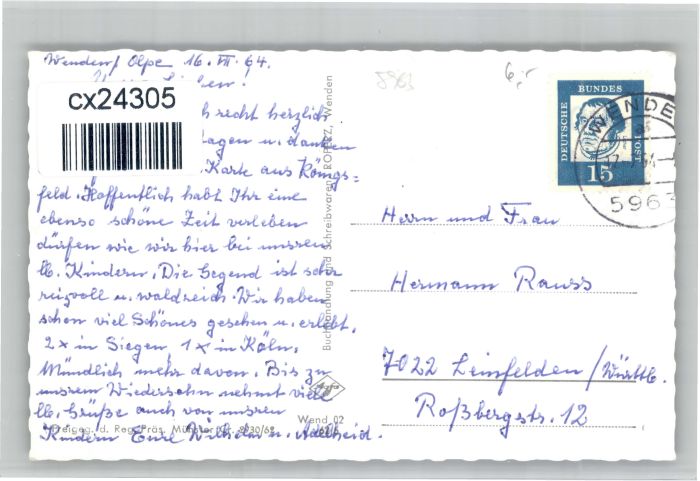 Wenden/Olpe 16. VII. 64.
cx24305
recht herzlich
sagen u. danken
Karte aus Königs=
feld. Hoffentlich habt Ihr eine
ebenso schöne Zeit verleben
dürfen wie wir hier bei unsren
lb. Kindern. Die Gegend ist sehr
reizvoll u. waldreich. Wir haben
schon viel Schönes gesehen u. erlebt.
2x in Siegen 1x in Köln,
Mündlich mehr davon. Bis zu
unsrem Wiedersehn nehmt viele
lb. Grüße auch von unsren
Kindern Eure Wilhelm u. Adelheid.
Freigeg. d. Reg. Präs. Münster Nr. 2130/62
Buchhandlung und Schreibwaren, Wenden
Agfa
Wend 02
5963
6,-
DEUTSCHE BUNDESPOST
15
WENDEN
5963
Herrn und Frau
Hermann Rauss
7022 Leinfelden / Württb.
Roßbergstr. 12